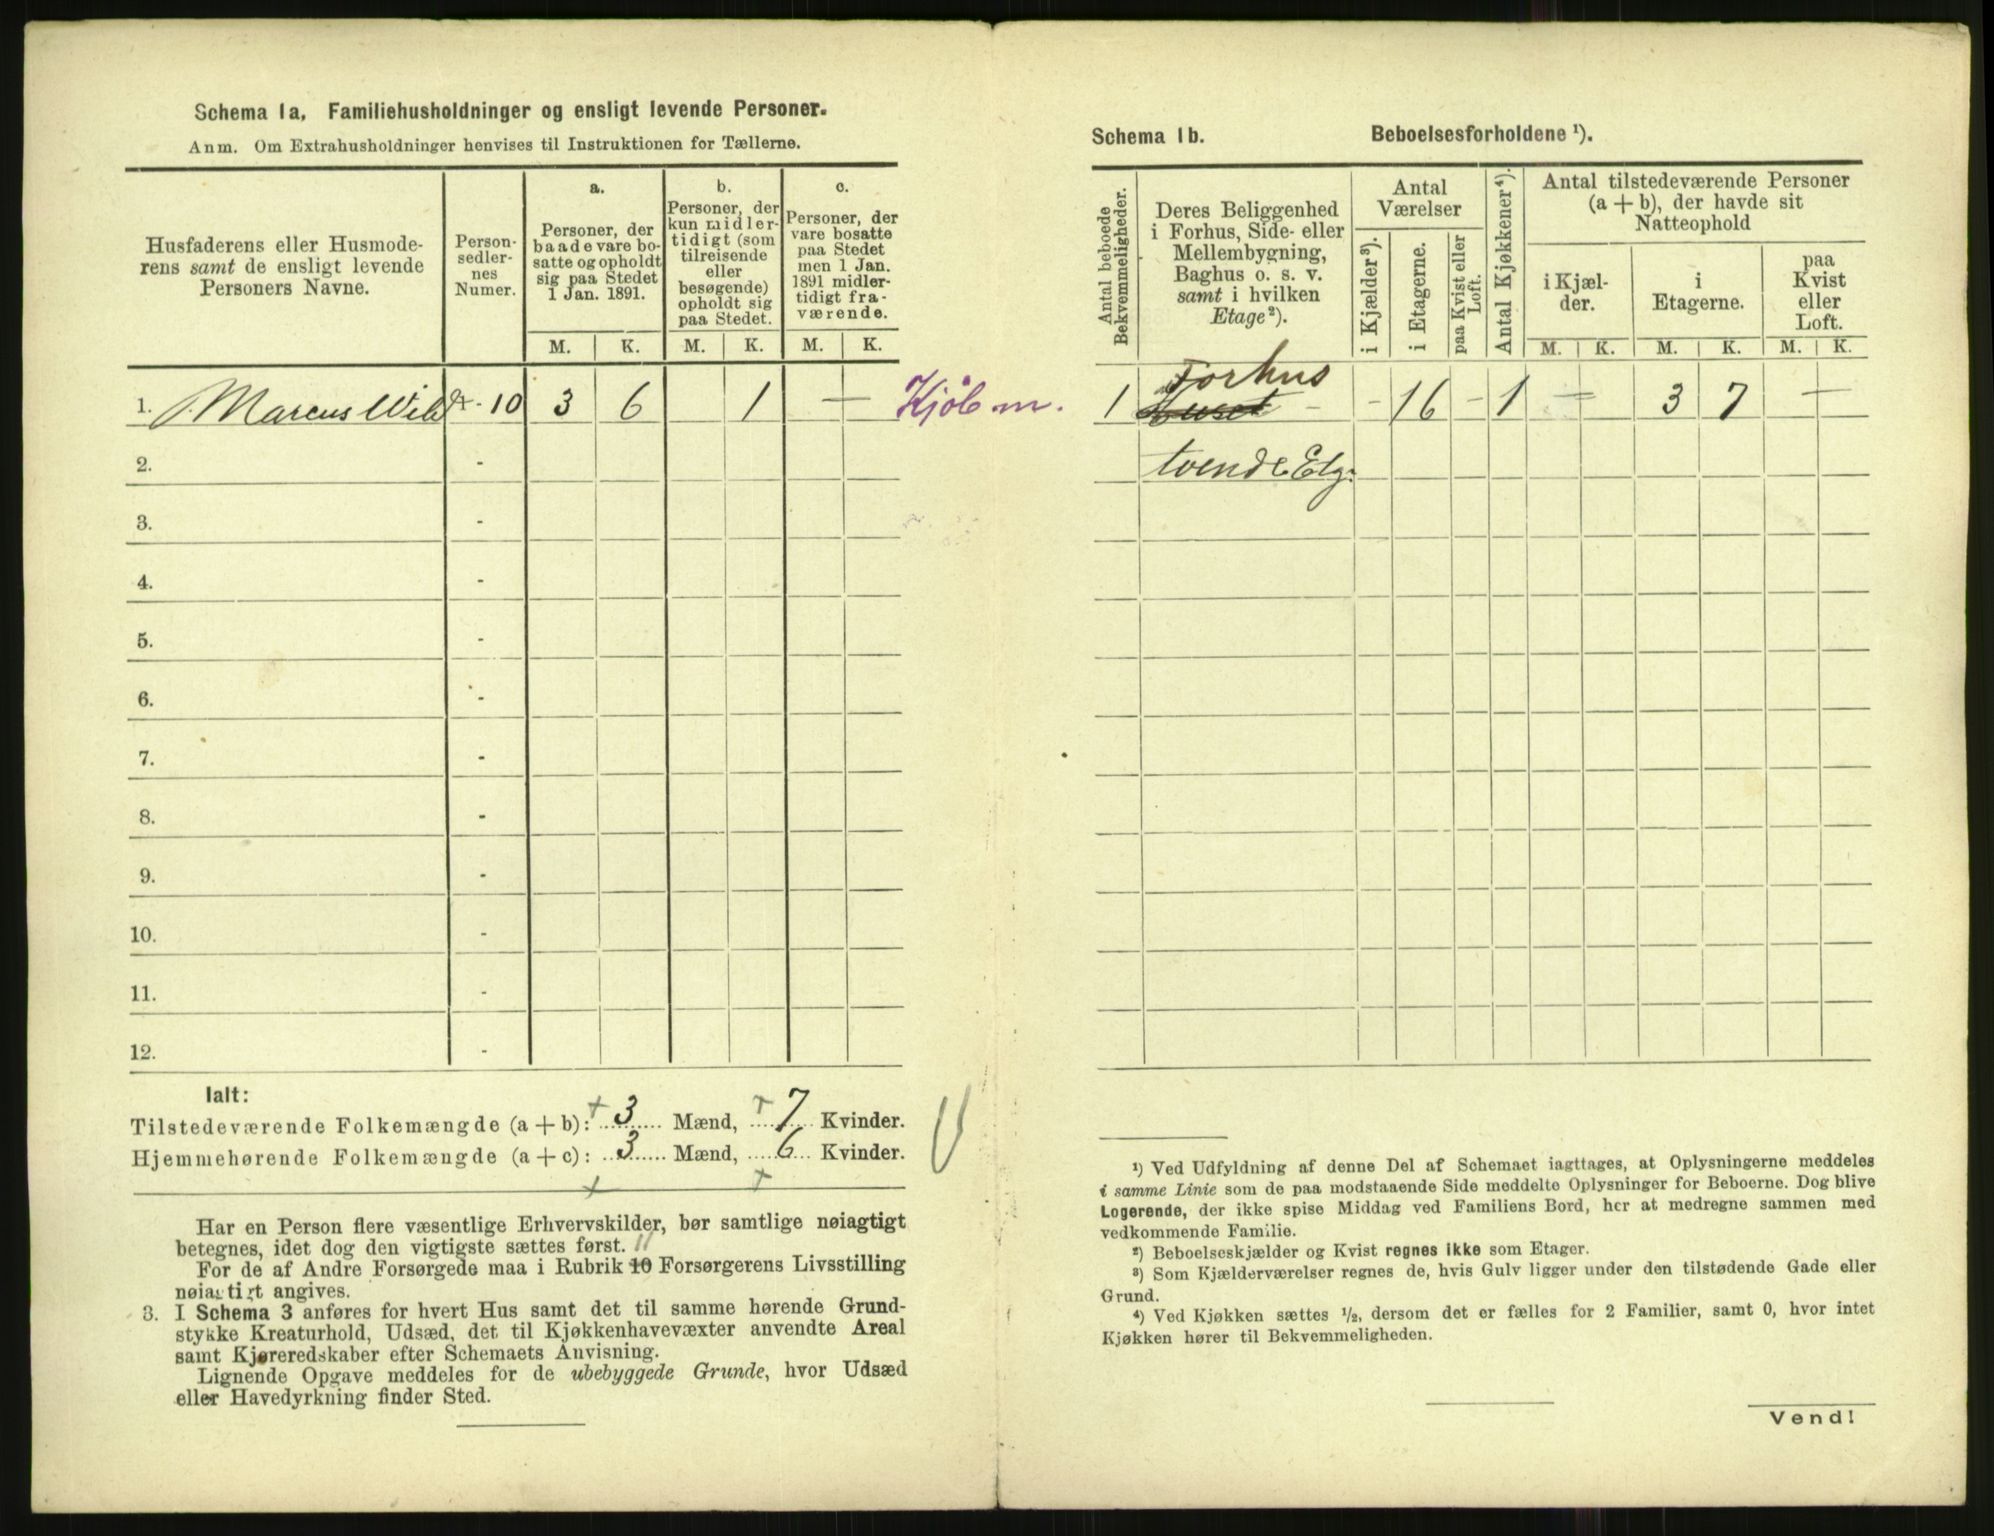 Schema 1a. Familiehusholdninger og ensligt levende Personer.
Anm. Om Extrahusholdninger henvises til Instruktionen for Tællerne.
Husfaderens eller Husmode-
rens samt de ensligt levende
Personers Navne.
Person-
sedler-
nes
Numer.
a.
Personer, der
baade vare bo-
satte og opholdt
sig paa Stedet
1 Jan. 1891.
b.
Personer, der
kun midler-
tidigt (som
tilreisende
eller
besøgende)
opholdt sig
paa Stedet.
c.
Personer, der
vare bosatte
paa Stedet
men 1 Jan.
1891 midler-
tidigt fra-
værende.
M. K. M. K. M. K.
1. Marcus - 10 3 6 1 — Kjøbm.
2. -
3. -
4. -
5. -
6. -
7. -
8. -
9. -
10. -
11. -
12. -
Ialt:
Tilstedeværende Folkemængde (a + b): 3 Mænd, 7 Kvinder.
Hjemmehørende Folkemængde (a + c): 3 Mænd, 6 Kvinder.
Har en Person flere væsentlige Erhvervskilder, bør samtlige nøiagtigt
betegnes, idet dog den vigtigste sættes først. 11
For de af Andre Forsørgede maa i Rubrik 10 Forsørgerens Livsstilling
nøiagtigt angives.
3. I Schema 3 anføres for hvert Hus samt det til samme hørende Grund-
stykke Kreaturhold, Udsæd, det til Kjøkkenhavevæxter anvendte Areal
samt Kjøreredskaber efter Schemaets Anvisning.
Lignende Opgave meddeles for de ubebyggede Grunde, hvor Udsæd
eller Havedyrkning finder Sted.
Schema 1b. Beboelsesforholdene ¹).
Antal beboede
Bekvemmeligheder.
Deres Beliggenhed
i Forhus, Side- eller
Mellembygning,
Baghus o. s. v.
samt i hvilken
Etage²).
Antal
Værelser
i Kjælder³).
i Etagerne.
paa Kvist eller
Loft.
Antal Kjøkkener⁴).
Antal tilstedeværende Personer
(a + b), der havde sit
Natteophold
i Kjæl-
der.
i
Etagerne.
paa
Kvist
eller
Loft.
M. K. M. K. M. K.
Forhus
1 Huset - - 16 - 1 — 3 7 —
tvende Etg.
¹) Ved Udfyldning af denne Del af Schemaet iagttages, at Oplysningerne meddeles
i samme Linie som de paa modstaaende Side meddelte Oplysninger for Beboerne. Dog blive
Logerende, der ikke spise Middag ved Familiens Bord, her at medregne sammen med
vedkommende Familie.
²) Beboelseskjælder og Kvist regnes ikke som Etager.
³) Som Kjælderværelser regnes de, hvis Gulv ligger under den tilstødende Gade eller
Grund.
⁴) Ved Kjøkken sættes ½, dersom det er fælles for 2 Familier, samt 0, hvor intet
Kjøkken hører til Bekvemmeligheden.
Vend!